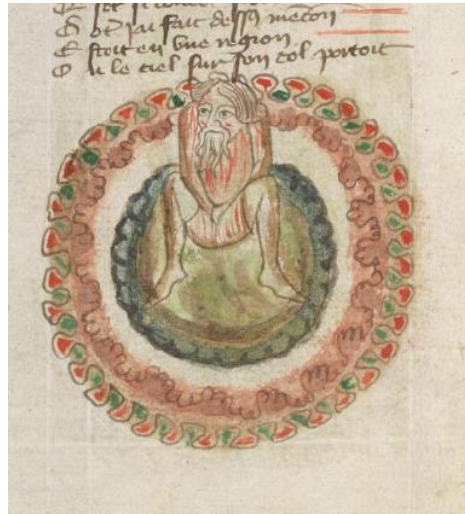 S ot j'ai fait dessus mencon
E stoit en une region
O u le ciel sur son col portoit